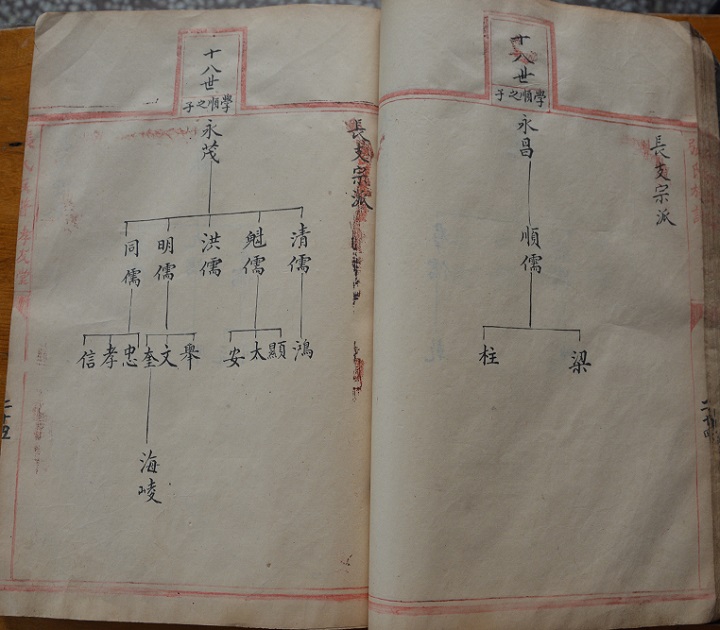 十八世
學順之子
永昌
長支宗派
順儒
梁
柱
二十四
十八世
學順之子
永茂
長支宗派
清儒
魁儒
洪儒
明儒
同儒
鴻
顯
太
安
舉
文
奎
忠
孝
信
海崚
二十五